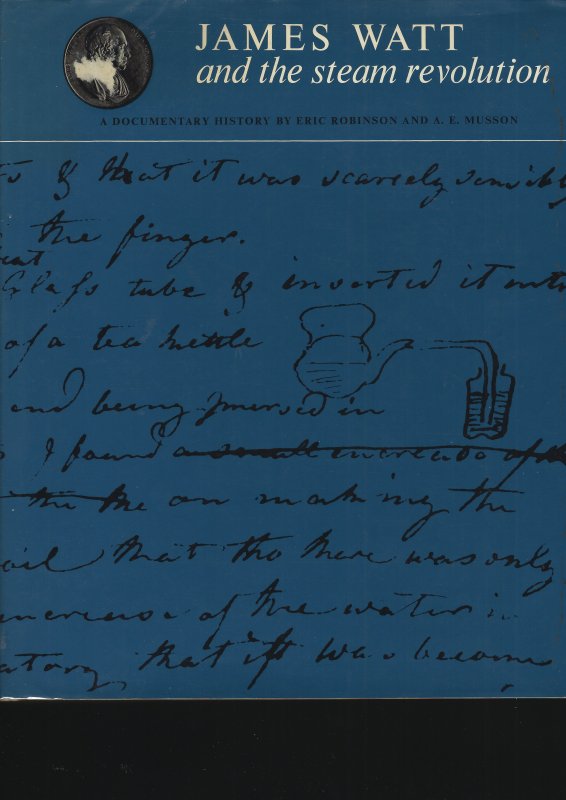 JAMES WATT
and the steam revolution
A DOCUMENTARY HISTORY BY ERIC ROBINSON AND A. E. MUSSON
& that it was scarcely sensibl
the finger.
Glass tube & inserted it into
of a tea kettle
and being immersed in
I found a small increase of the
the the on making the
oil that tho there was only
increase of the water in
atory that it was become